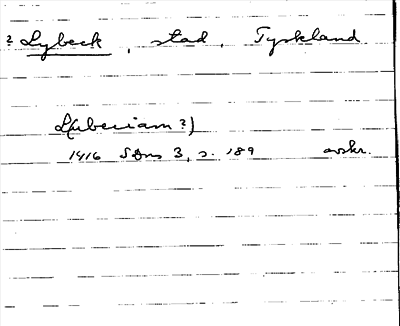 ? Lybeck, stad, Tyskland
L(uberiam?)
1416 SDns 3, s. 189 avskr.